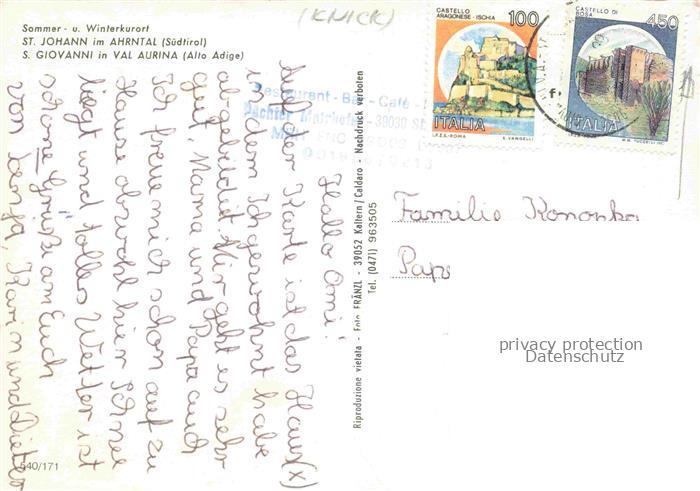 (KNICK)
Sommer - u. Winterkurort
ST. JOHANN im AHRNTAL (Südtirol)
S. GIOVANNI in VAL AURINA (Alto Adige)
Hallo Omi!
Auf der Karte ist das Haus (x)
in dem Ich gewohnt habe
abgebildet. Mir geht es sehr
gut, Mama und Papa auch
Ich freue mich schon auf zu
Hause obwohl hier Schnee
liegt und tolles Wetter ist
schöne Grüße am Euch
von Karin und Dieter
540/171
Restaurant - Bar - Café
Pächter 39030
Riproduzione vietata - Foto FRÄNZL - 39052 Kaltern/Caldaro - Nachdruck verboten
Tel. (0471) 963505
CASTELLO
ARAGONESE - ISCHIA
100
ITALIA
I.P.Z.S. - ROMA
E. VANGELLI
CASTELLO DI
BOSA
450
ITALIA
Familie Konopka
Pap
privacy protection
Datenschutz